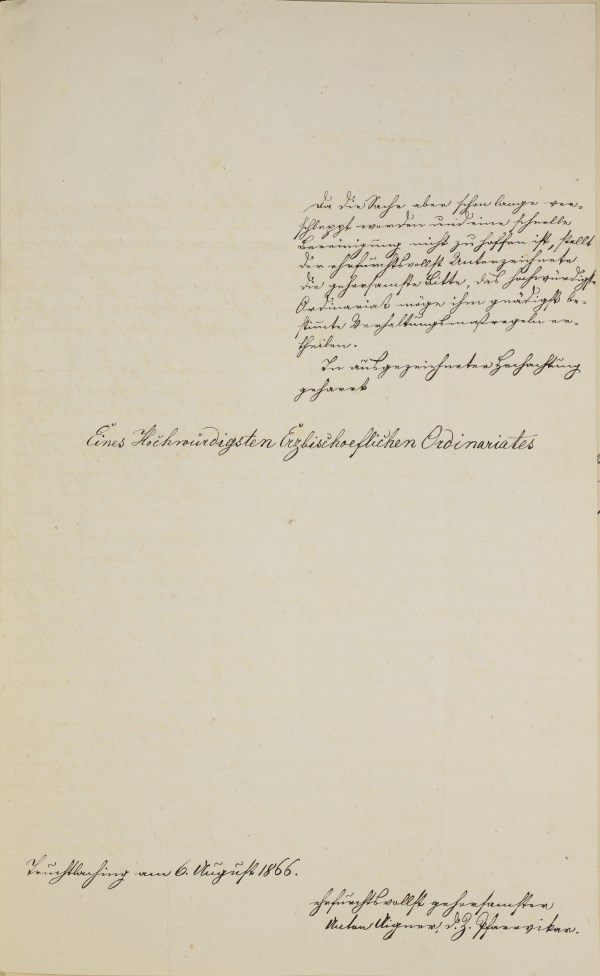 Da die Sache aber schon lange ver-
schleppt worden und eine schnelle
Bereinigung nicht zu hoffen ist, stellt
der ehrfurchtsvollst Unterzeichnete
die gehorsamste Bitte, das hochwürdigste
Ordinariat möge ihm gnädigst be-
stimmte Verhaltungsmaßregeln er-
theilen.
In ausgezeichneter Hochachtung
geharrt
Eines Hochwürdigsten Erzbischoeflichen Ordinariates
Truchtlaching am 6. August 1866.
ehrfurchtsvollst gehorsamster
Anton Aigner, d. Z. Pfarrvikar.